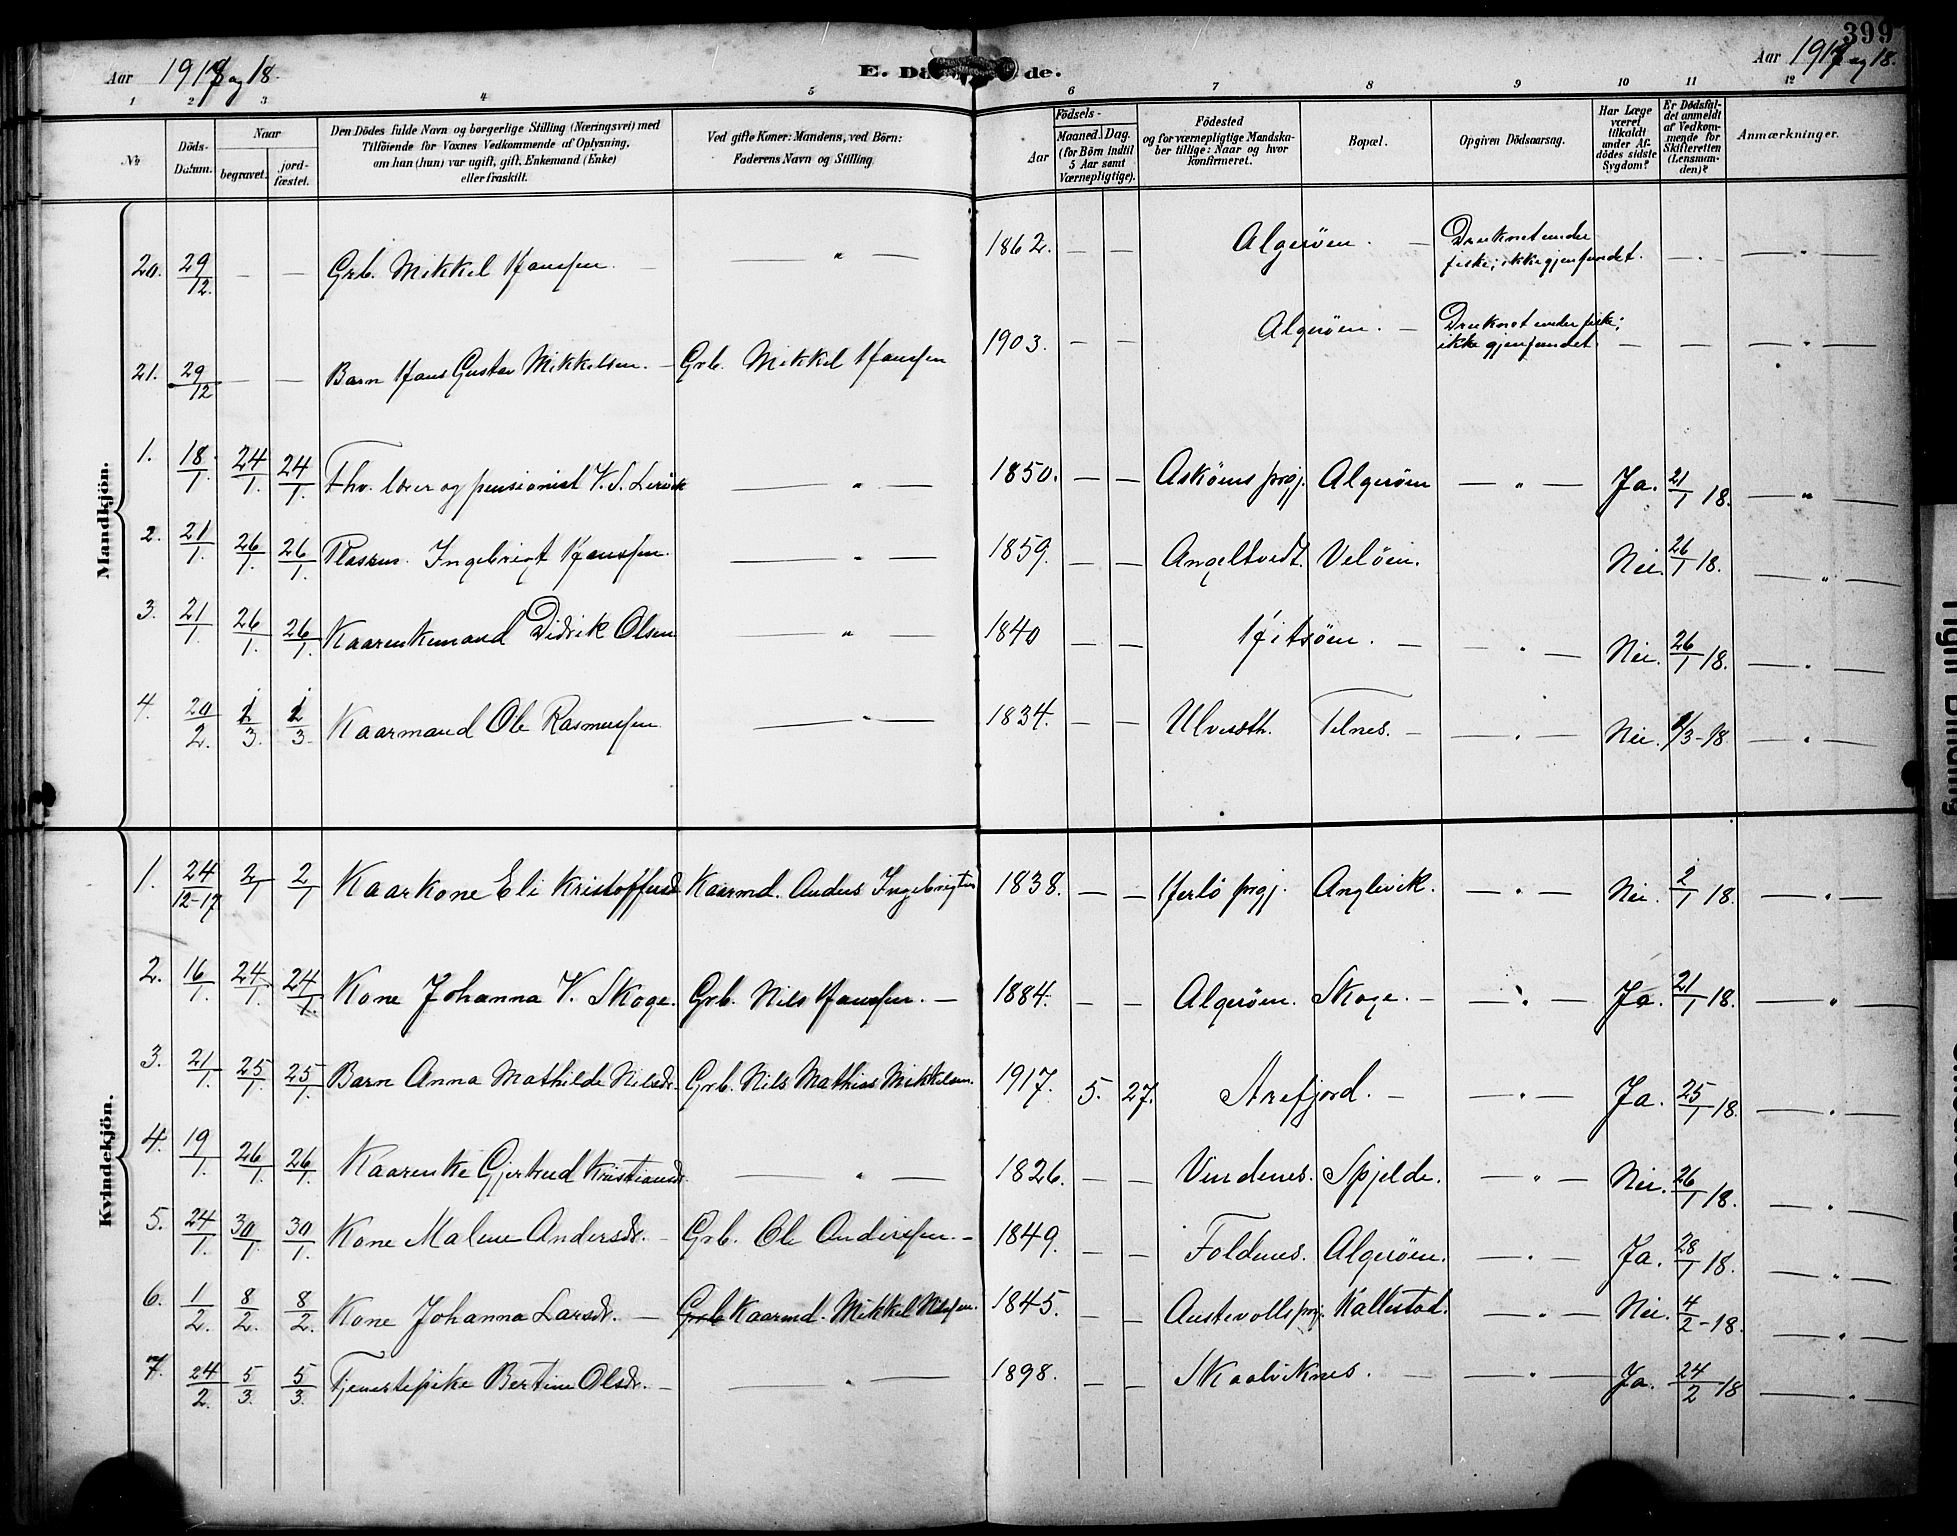 399
Aar 1917 og 18.
E. Dö de.
Aar 1917 og 18.
1 2 3 4 5 6 7 8 9 10 11 12
No
Döds-Datum.
Naar
begravet.
jord-fæstet.
Den Dödes fulde Navn og borgerlige Stilling (Næringsvei) med
Tilföiende for Voxnes Vedkommende af Oplysning,
om han (hun) var ugift, gift, Enkemand (Enke)
eller fraskilt.
Ved gifte Koner: Mandens, ved Börn:
Faderens Navn og Stilling.
Födsels-
Aar
Maaned. Dag.
(for Börn indtil
5 Aar samt
Værnepligtige).
Födested
og for værnepligtige Mandska-
ber tillige: Naar og hvor
konfirmeret.
Bopæl.
Opgiven Dödsaarsag.
Har Læge
været
tilkaldt
under Af-
dödes sidste
Sygdom?
Er Dödsfal-
det anmeldt
af Vedkom-
mende for
Skifteretten
(Lensman-
den)?
Anmærkninger.
Mandkjön.
20. 29/12. — — Grb. Mikkel Hanssen. — " — 1862. — — Algeröen. — Druknet under
fiske; ikke gjenfundet. — . — — " —
21. 29/12 — — Barn Hans Gustav Mikkelsen. — Grb. Mikkel Hanssen 1903. — — Algeröen. — Druknet under fiske;
ikke gjenfundet. — — — " —
1. 18/1. 24/1. 24/1. Fhv. lærer og pensionist V. S. Leröck — " — 1850. — — Asköens prgj. Algeröen — " — Ja. 21/1 18. — " —
2. 21/1. 26/1. 26/1. Plassm. Ingebrigt Hanssen. — " — 1859. — — Angeltvedt. Velöen. Nei. 26/1 18. — " —
3. 21/1. 26/1. 26/1. Kaarenkemand Didrik Olsen — " — 1840 — — Hitsöen. — — " — Nei. 26/1 18. — " —
4. 20/2. 2/3. 2/3. Kaarmand Ole Rasmussen — " — 1834. — — Ulveseth. Telnes. — — " — Nei. /3-18 — " —
Kvindekjön.
1. 24/12-17 2/1 2/1 Kaarkone Eli Kristoffersd. Kaarmd. Anders Ingebrigtsen 1838. — — Herlö prgj. Anglevik. — " — Nei. 2/1 18. — " —
2. 16/1. 24/1. 24/1. Kone Johanna V. Skoge. Grb. Nils Hanssen. — 1884. — — Algeröen. Skoge. — — " — Ja. 21/1 18. — " —
3. 21/1. 25/1. 25/1. Barn Anna Mathilde Nilsdr. Grb. Nils Mathias Mikkelsen. 1917. 5. 27. Arefjord. — — " — Ja. 25/1 18. — " —
4. 19/1. 26/1. 26/1. Kaarenke Gjertrud Kristiansdr. — " — 1826. — — Vindenes. Spjelde. — " — Nei. 26/1 18. — " —
5. 24/1. 30/1. 30/1. Kone Malene Andersdr. — Grb. Ole Anderssen. — 1849. — — Foldnes. Algeröen. — " — Ja. 28/1 18. — " —
6. 1/2. 8/2. 8/2. Kone Johanna Larsdr. — Grb Kaarmd. Mikkel Nilssen. 1845. — — Austevolls prgj. Kallestad. — " — Nei. 4/2-18. — " —
7. 24/2. 5/3. 5/3. Tjenestepike Bertine Olsdr. — — " — 1898. — — Skaalviknes. — — " — Ja. 24/2 18 — " —